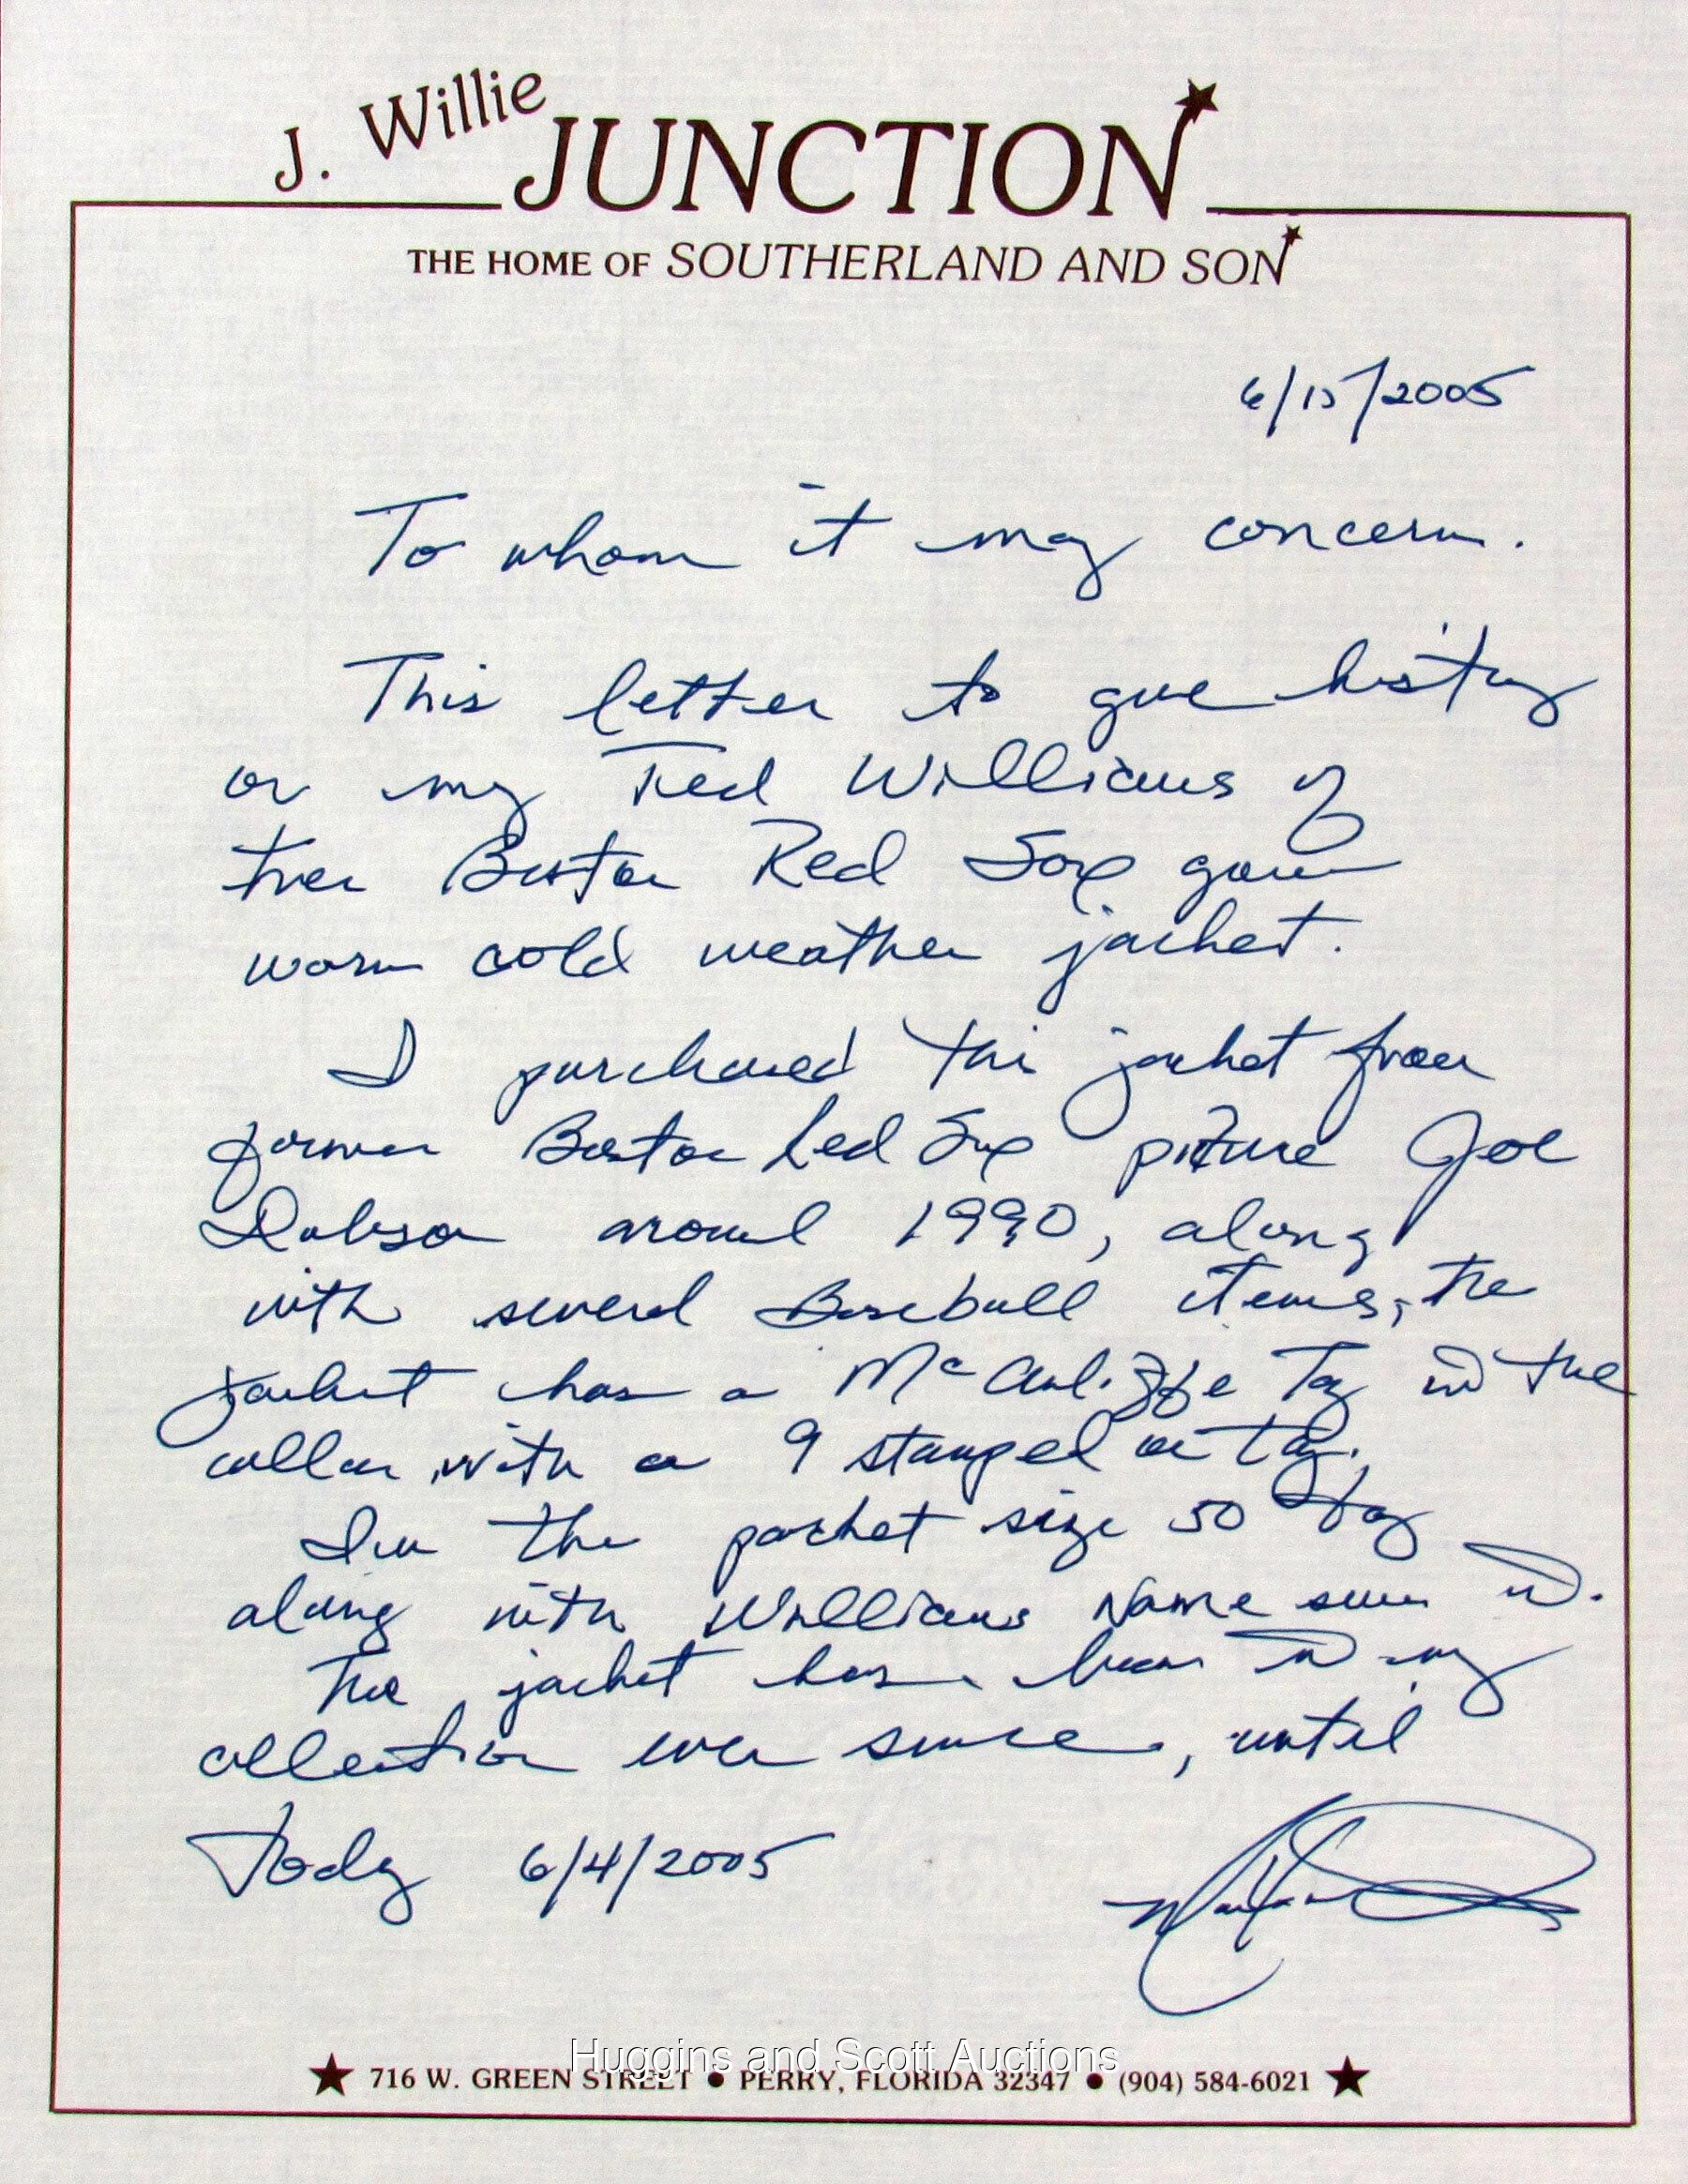 J. Willie JUNCTION
THE HOME OF SOUTHERLAND AND SON
6/15/2005
To whom it may concern.
This letter to give history
on my Ted Williams of
the Boston Red Sox game
worn cold weather jacket.
I purchased this jacket from
former Boston Red Sox picture Joe
Dobson around 1990, along
with several Baseball items, the
jacket has a McAuliffe Tag in the
collar with a 9 stamped on tag.
In the pocket size 50 tag
along with Williams Name sewn in.
The jacket has been in my
collection ever since, until
Today 6/4/2005
Huggins and Scott Auctions
716 W. GREEN STREET • PERRY, FLORIDA 32347 • (904) 584-6021